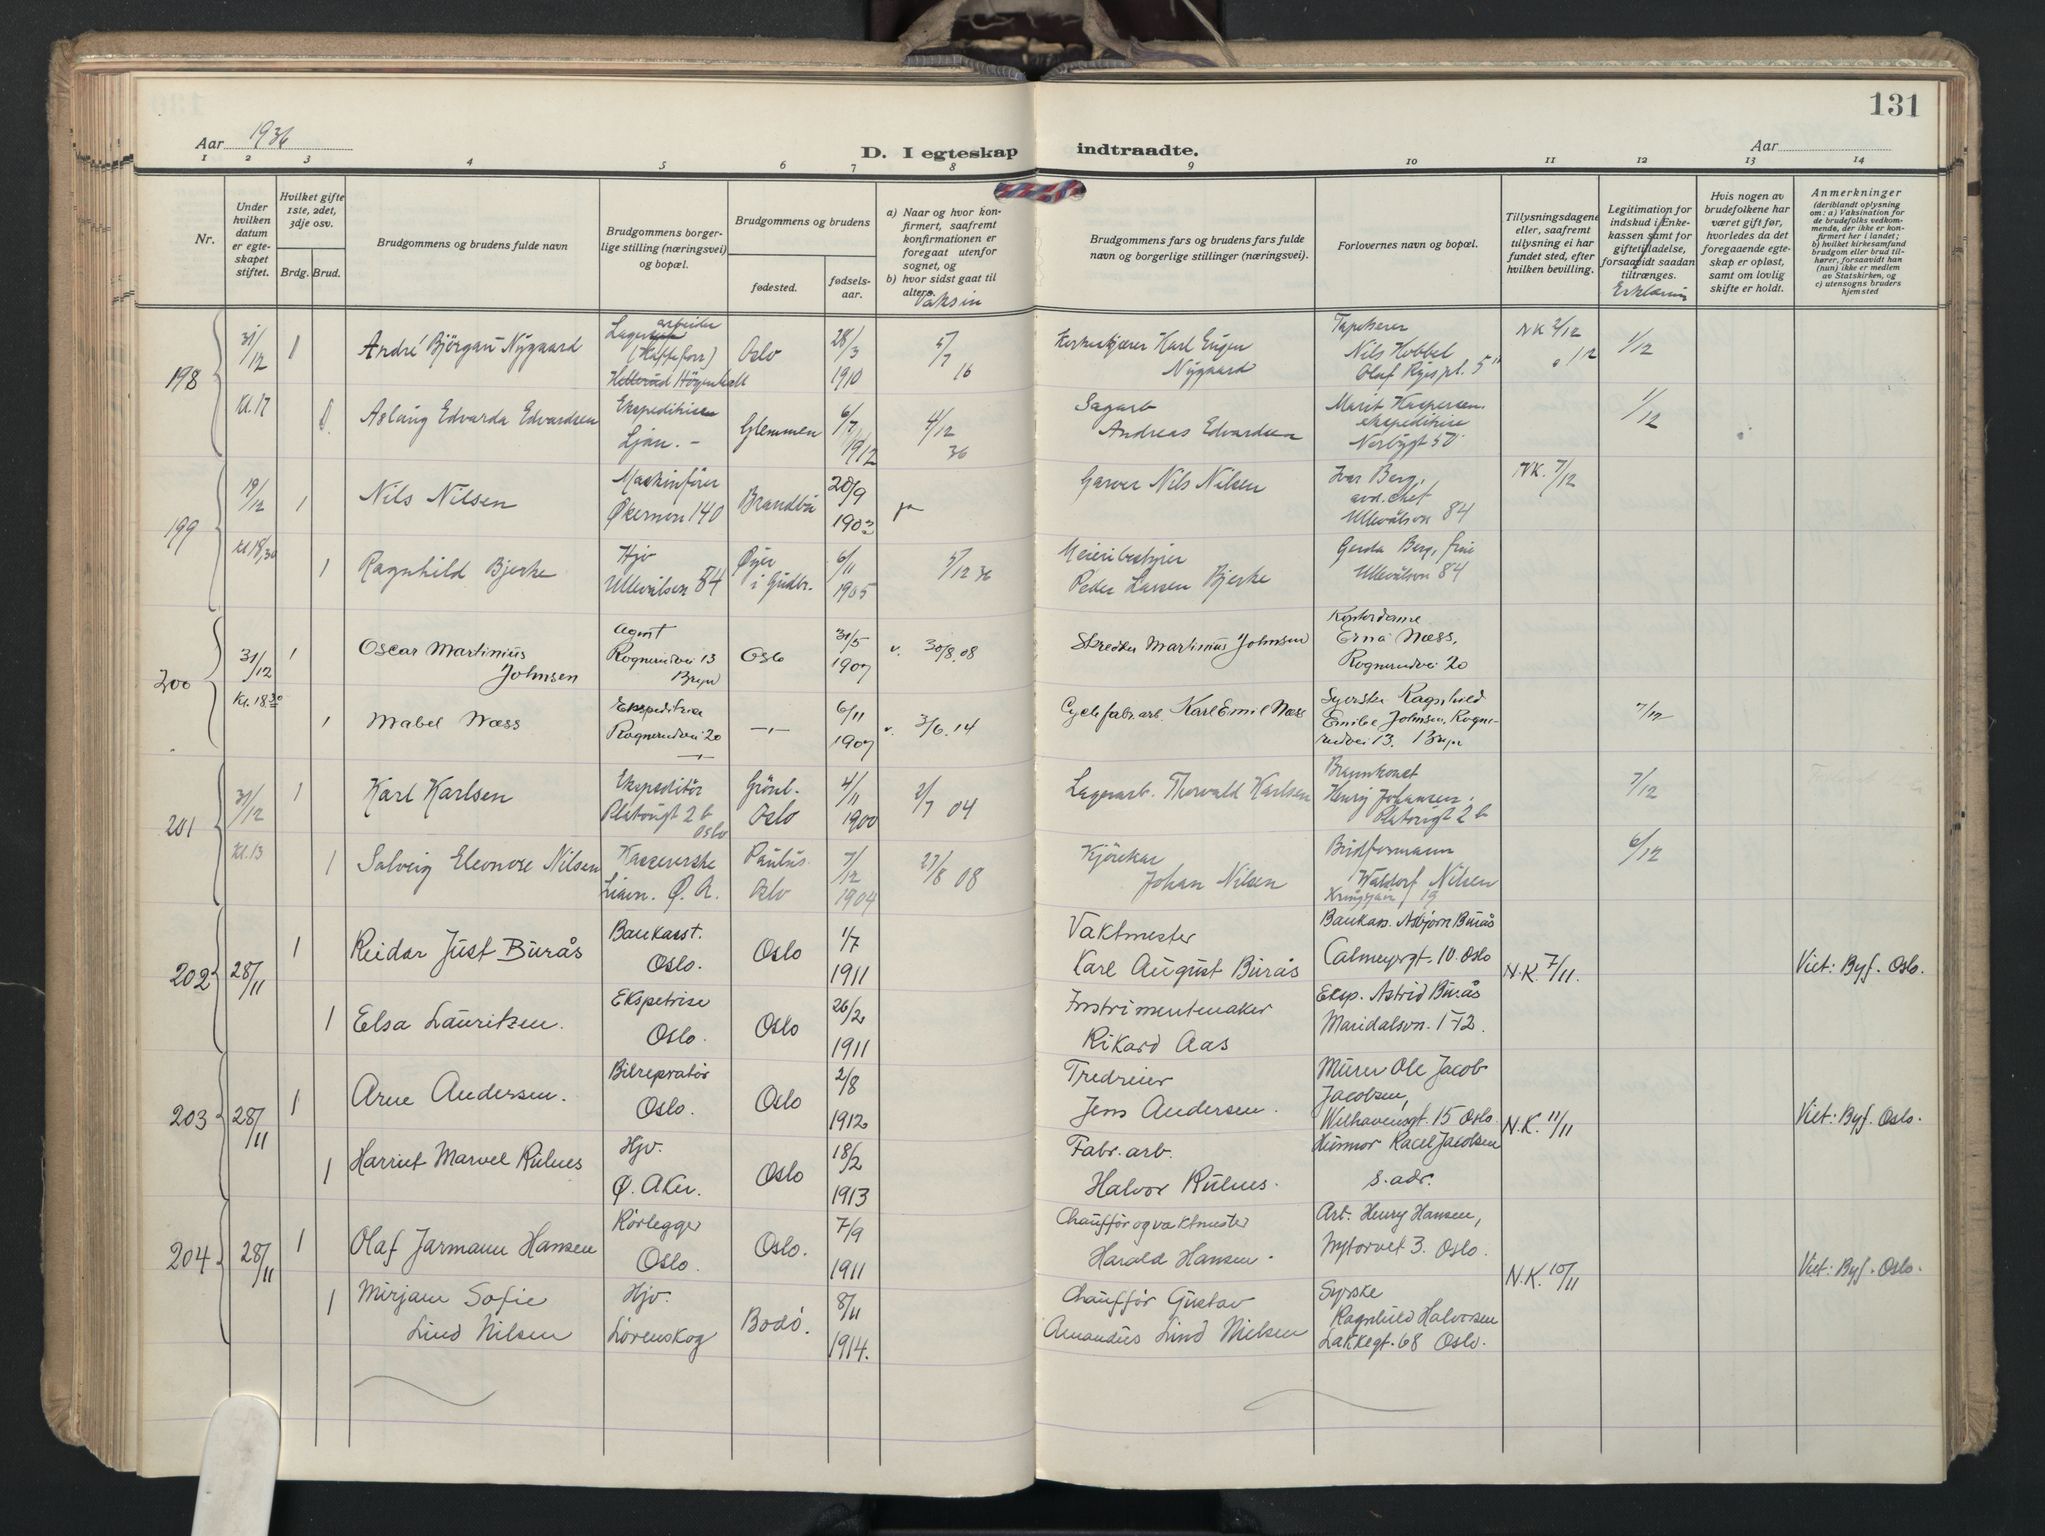 131
Aar 1936
D. I egteskap indtraadte.
Aar
1 2 3 4 5 6 7 8 9 10 11 12 13 14
Nr.
Under hvilken datum er egteskapet stiftet.
Hvilket gifte 1ste, 2det, 3dje osv.
Brdg. Brud.
Brudgommens og brudens fulde navn
Brudgommens borgerlige stilling (næringsvei) og bopæl.
Brudgommens og brudens
fødested.
fødselsaar.
a) Naar og hvor konfirmert, saafremt konfirmationen er foregaat utenfor sognet, og
b) hvor sidst gaat til alters.
Vaksin
Brudgommens fars og brudens fars fulde navn og borgerlige stillinger (næringsvei).
Forlovernes navn og bopæl.
Tillysningsdagene eller, saafremt tillysning ei har fundet sted, efter hvilken bevilling.
Legitimation for indskud i Enkekassen samt for giftetilladelse, forsaavidt saadan tiltrænges.
Erklæring
Hvis nogen av brudefolkene har været gift før, hvorledes da det foregaaende egteskap er opløst, samt om lovlig skifte er holdt.
Anmerkninger (deriblandt oplysning om: a) Vaksination for de brudefolks vedkommende, der ikke er konfirmert her i landet; b) hvilket kirkesamfund brudgom eller brud tilhører, forsaavidt han (hun) ikke er medlem av Statskirken, og c) utensogns bruders hjemsted
198 31/12 Kl. 17
1 André Bjørgan Nygaard
Lagerarbeider
Oslo 28/3 1910
5/7 16
Karl Eugen Nygaard
Tapetserer Nils Hobbel Olaf Ryespl. 5
NK 2/12
1/12
Aslaug Edvarda Edvardsen
Ekspeditrise Ljan. -
Glemmen 6/7 1912
4/12 36
Sagarb Andreas Edvardsen
Marit Kaspersen. ekspeditrise Norbygt 50
1/12
199 19/12 Kl 18/30
1 Nils Nilsen
Maskinfører Økernvn 140
Brandbu 20/9 1903
ja
Garver Nils Nilsen
Ivar Berg, avd. chef Ullevålsvn 84
NK. 7/12
1 Ragnhild Bjerke
Hjv Ullevålsvn 84
Øyer i Gudbr. 6/11 1905
5/12 36
Meieribestyrer Peder Larsen Bjerke
Gerda Berg, frue Ullevålsvn 84
200 31/12 Kl. 18 30
1 Oscar Martinius Johnsen
Agent Rognerudvei 13 Bryn
Oslo 31/5 1907
v. 30/8. 08
Skredder Martinius Johnsen
Kontordame Erna Næss, Rognerudvei 20
1 Mabel Næss
Ekspeditrise Rognerudvei 20 —„—
—„— 6/11 1907
v. 3/6. 14
Cyclefabr.arb. Karl Emil Næss
Syerske Ragnhild Emilie Johnsen, Rognerudvei 13. Bryn
7/12
201 31/12 Kl. 13
1 Karl Karlsen
Ekspeditør Platougt 2 b Oslo
Grønl. Oslo 4/11 1900
2/7 04
Lagerarb. Thorvald Karlsen
Henry Johansen. Platougt 2 b
7/12
1 Solveig Eleonore Nilsen
Kassererske Lian. Ø. A.
Paulus. Oslo 7/12 1904
27/8 08
Kjørekar Johan Nilsen
Budformann Waldorf Nilsen 19
6/12
202 28/11
1 Reidar Just Burås
Bankasst. Oslo.
Oslo 1/7 1911
Vaktmester Karl August Burås
Bankass. Asbjørn Burås Calmeyrgt. 10 Oslo
N.K. 7/11.
Viet: Byf. Oslo.
1 Elsa Lauritzen.
Ekspetrise Oslo.
Oslo 26/2 1911
Instrumentmaker Rikard Aas
Eksp. Astrid Burås Maridalsvn. 172.
203 28/11
1 Arne Andersen.
Bilrepratør Oslo.
Oslo 2/8 1912
Tredreier Jens Andersen.
Murer Ole Jacob Jacobsen, Welhavensgt. 15 Oslo.
N.K. 11/11
Viet: Byf. Oslo.
1 Harriet Marvel Rulnes
Hjv. Ø. Aker.
Oslo 18/2 1913
Fabr. arb. Halvor Rulnes.
Husmor Racel Jacobsen s. adr.
204 28/11
1 Olaf Jarmann Hansen
Rørlegger Oslo.
Oslo. 7/9 1911
Chauffør og vaktmester Harald Hansen.
Arb. Henry Hansen, Nytorvet 3. Oslo.
N.K. 10/11
Viet: Byf. Oslo.
1 Mirjam Sofie Lind Nilsen
Hjv. Lørenskog
Bodø. 8/11 1914.
Chauffør Gustav Amandus Lind Nielsen
Syrske Ragnhild Halvorsen Lakkegt. 68 Oslo.